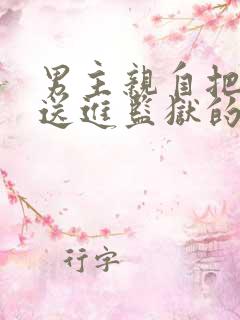 男主親自把
送進監獄的
行字